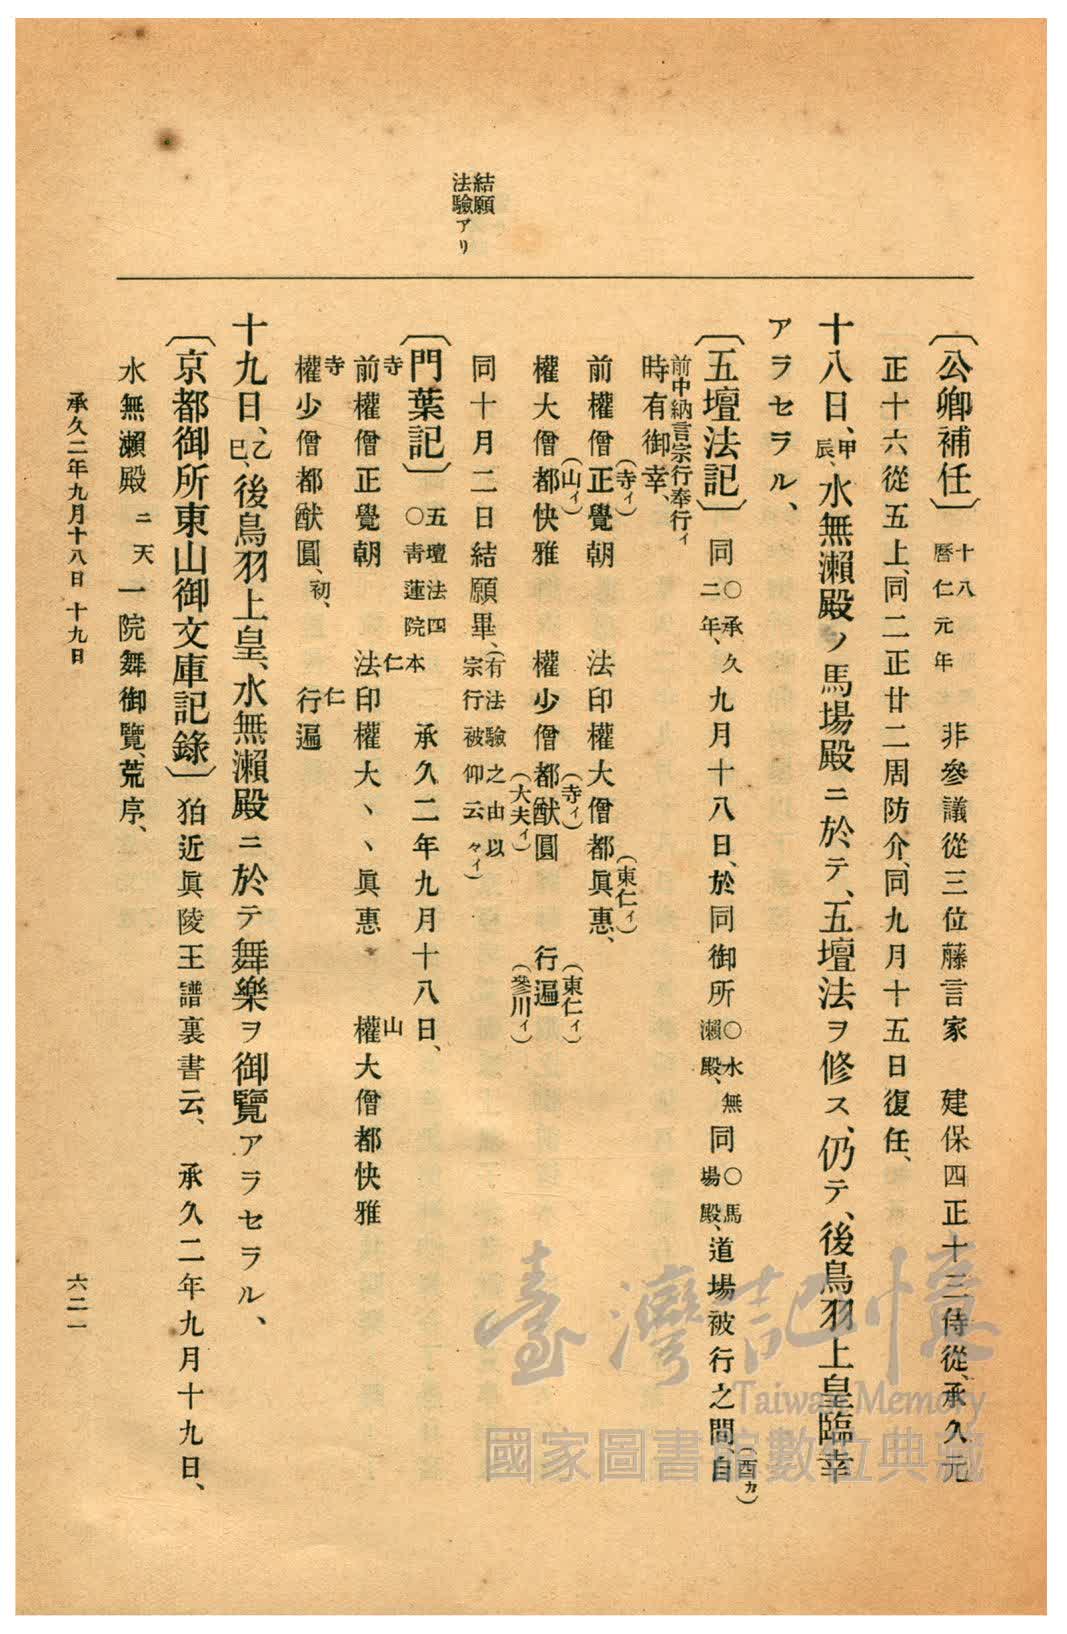 結願
法驗アリ
〔公卿補任〕十八曆仁元年 非參議從三位藤言家 建保四正十三侍從、承久元
正十六從五上、同二正廿二周防介、同九月十五日復任、
十八日、甲辰、水無瀨殿ノ馬場殿ニ於テ、五壇法ヲ修ス、仍テ、後鳥羽上皇臨幸
アラセラル、
〔五壇法記〕同〇承久二年、九月十八日、於同御所〇水無瀨殿、同〇馬場殿、道場被行之間、自(酉カ)
時有御幸、前中納言宗行奉行ィ
前權僧正覺朝(寺ィ) 法印權大僧都眞惠、(東仁ィ)
權大僧都快雅(山ィ) 權少僧都猷圓(寺ィ) 行遍(東仁ィ)
同十月二日結願畢、(有法驗之由以宗行被仰云々ィ)(大夫ィ)(參川ィ)
〔門葉記〕五壇法四〇靑蓮院本 承久二年九月十八日、
前權僧正覺朝寺 法印權大、、眞惠仁 權大僧都快雅山
權少僧都猷圓、初、寺 行遍仁
十九日、乙巳、後鳥羽上皇、水無瀨殿ニ於テ舞樂ヲ御覽アラセラル、
〔京都御所東山御文庫記錄〕狛近眞陵王譜裏書云、 承久二年九月十九日、
水無瀨殿ニ天一院舞御覽、荒序、
承久二年九月十八日 十九日
六二一
臺灣記憶
Taiwan Memory
國家圖書館數位典藏